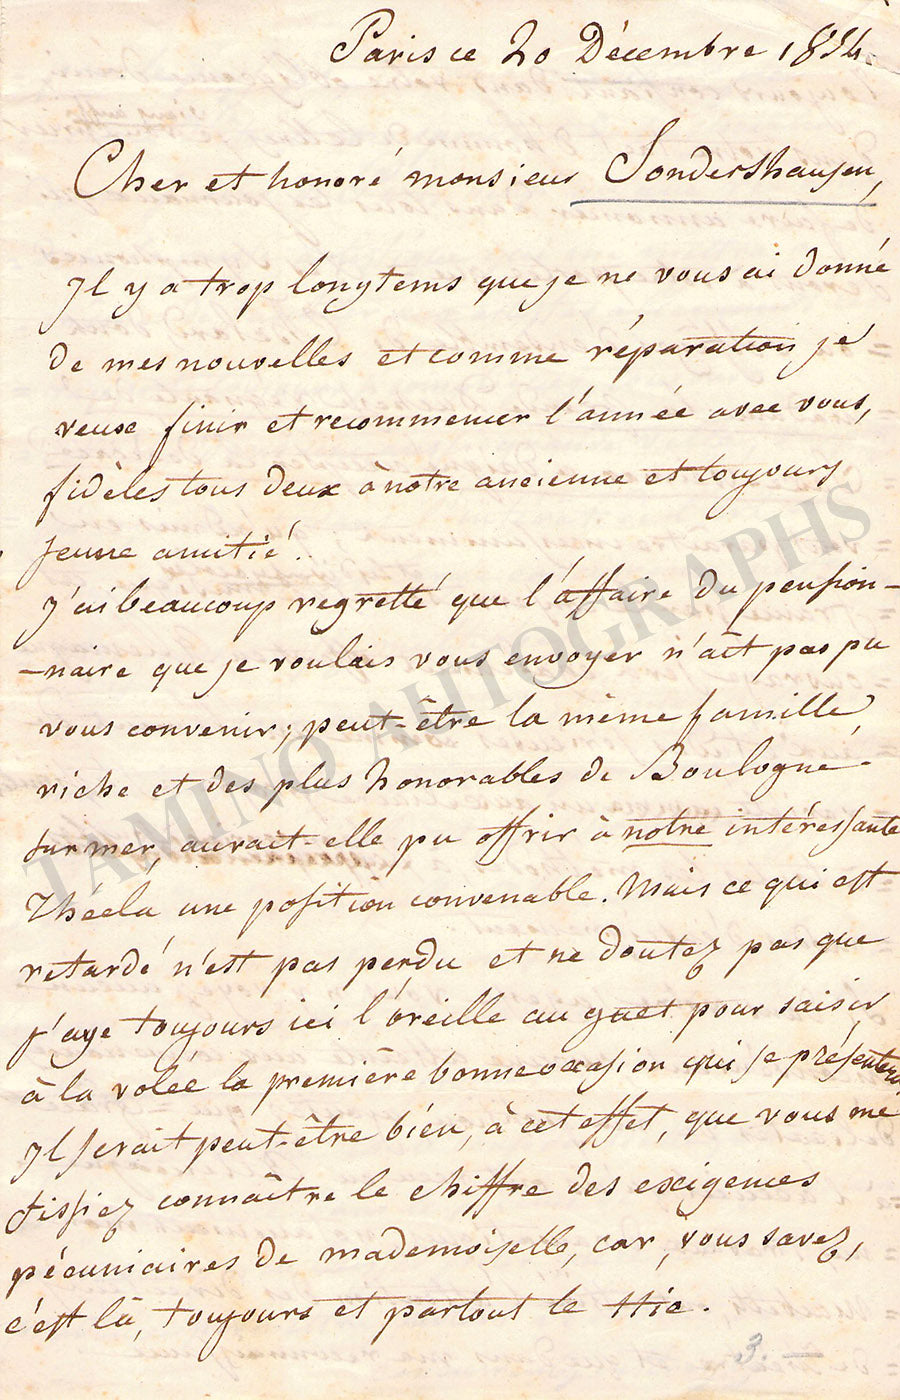 Paris ce 20 Décembre 1854.
Cher et honoré monsieur Sondershausen,
Il y a trop longtems que je ne vous ai donné
de mes nouvelles et comme réparation je
veuxe finir et recommencer l'année avec vous,
fidèles tous deux à notre ancienne et toujours
jeune amitié.
J'ai beaucoup regretté que l'affaire du pension-
-naire que je voulais vous envoyer n'ait pas pu
vous convenir; peut-être la même famille
riche et des plus honorables de Boulogne-
sur mer, aurait-elle pu offrir à notre intéressante
Thécla une position convenable. Mais ce qui est
retardé n'est pas perdu et ne doutez pas que
j'aye toujours ici l'oreille au guet pour saisir
à la volée la première bonne occasion qui se présentera.
Il serait peut-être bien, à cet effet, que vous me
fissiez connaître le chiffre des exigences
pécuniaires de mademoiselle, car, vous savez,
c'est là, toujours et partout le Hic.
3.
TAMINO AUTOGRAPHS